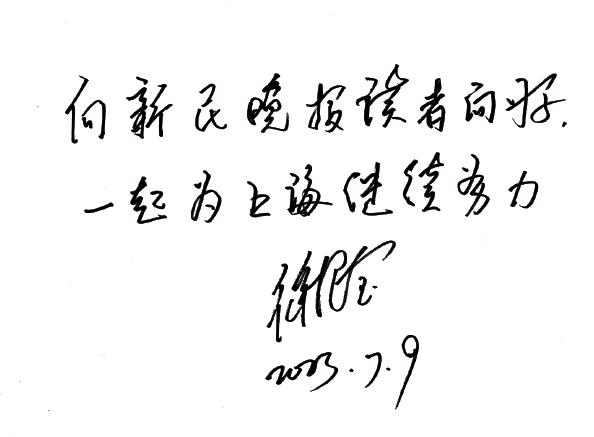 向新民晚报读者问好.
一起为上海继续努力
2003.7.9